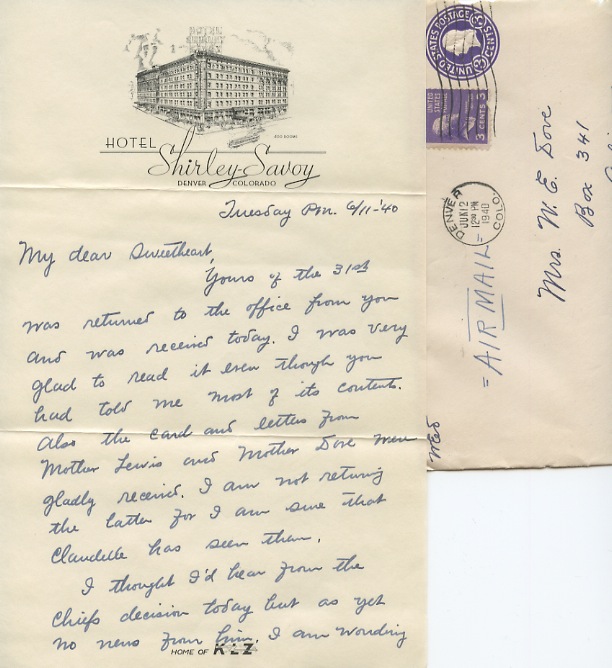 400 ROOMS
HOTEL
Shirley-Savoy
DENVER COLORADO
Tuesday P.M. 6/11-'40
My dear Sweetheart,
Yours of the 31st
was returned to the office from you
and was received today. I was very
glad to read it even though you
had told me most of its contents.
Also the card and letters from
Mother Lewis and Mother Dove were
gladly received. I am not returing
the latter for I am sure that
Claudelle has seen them.
I thought I'd hear from the
Chiefs decision today but as yet
no news from him. I am wonding
HOME OF KLZ
UNITED STATES POSTAGE
3 CENTS 3
UNITED STATES
3 CENTS 3
DENVER COLO.
JUN 12
12 PM
1940
=AIR MAIL=
Mrs. W. E. Dove
Box 341
WED